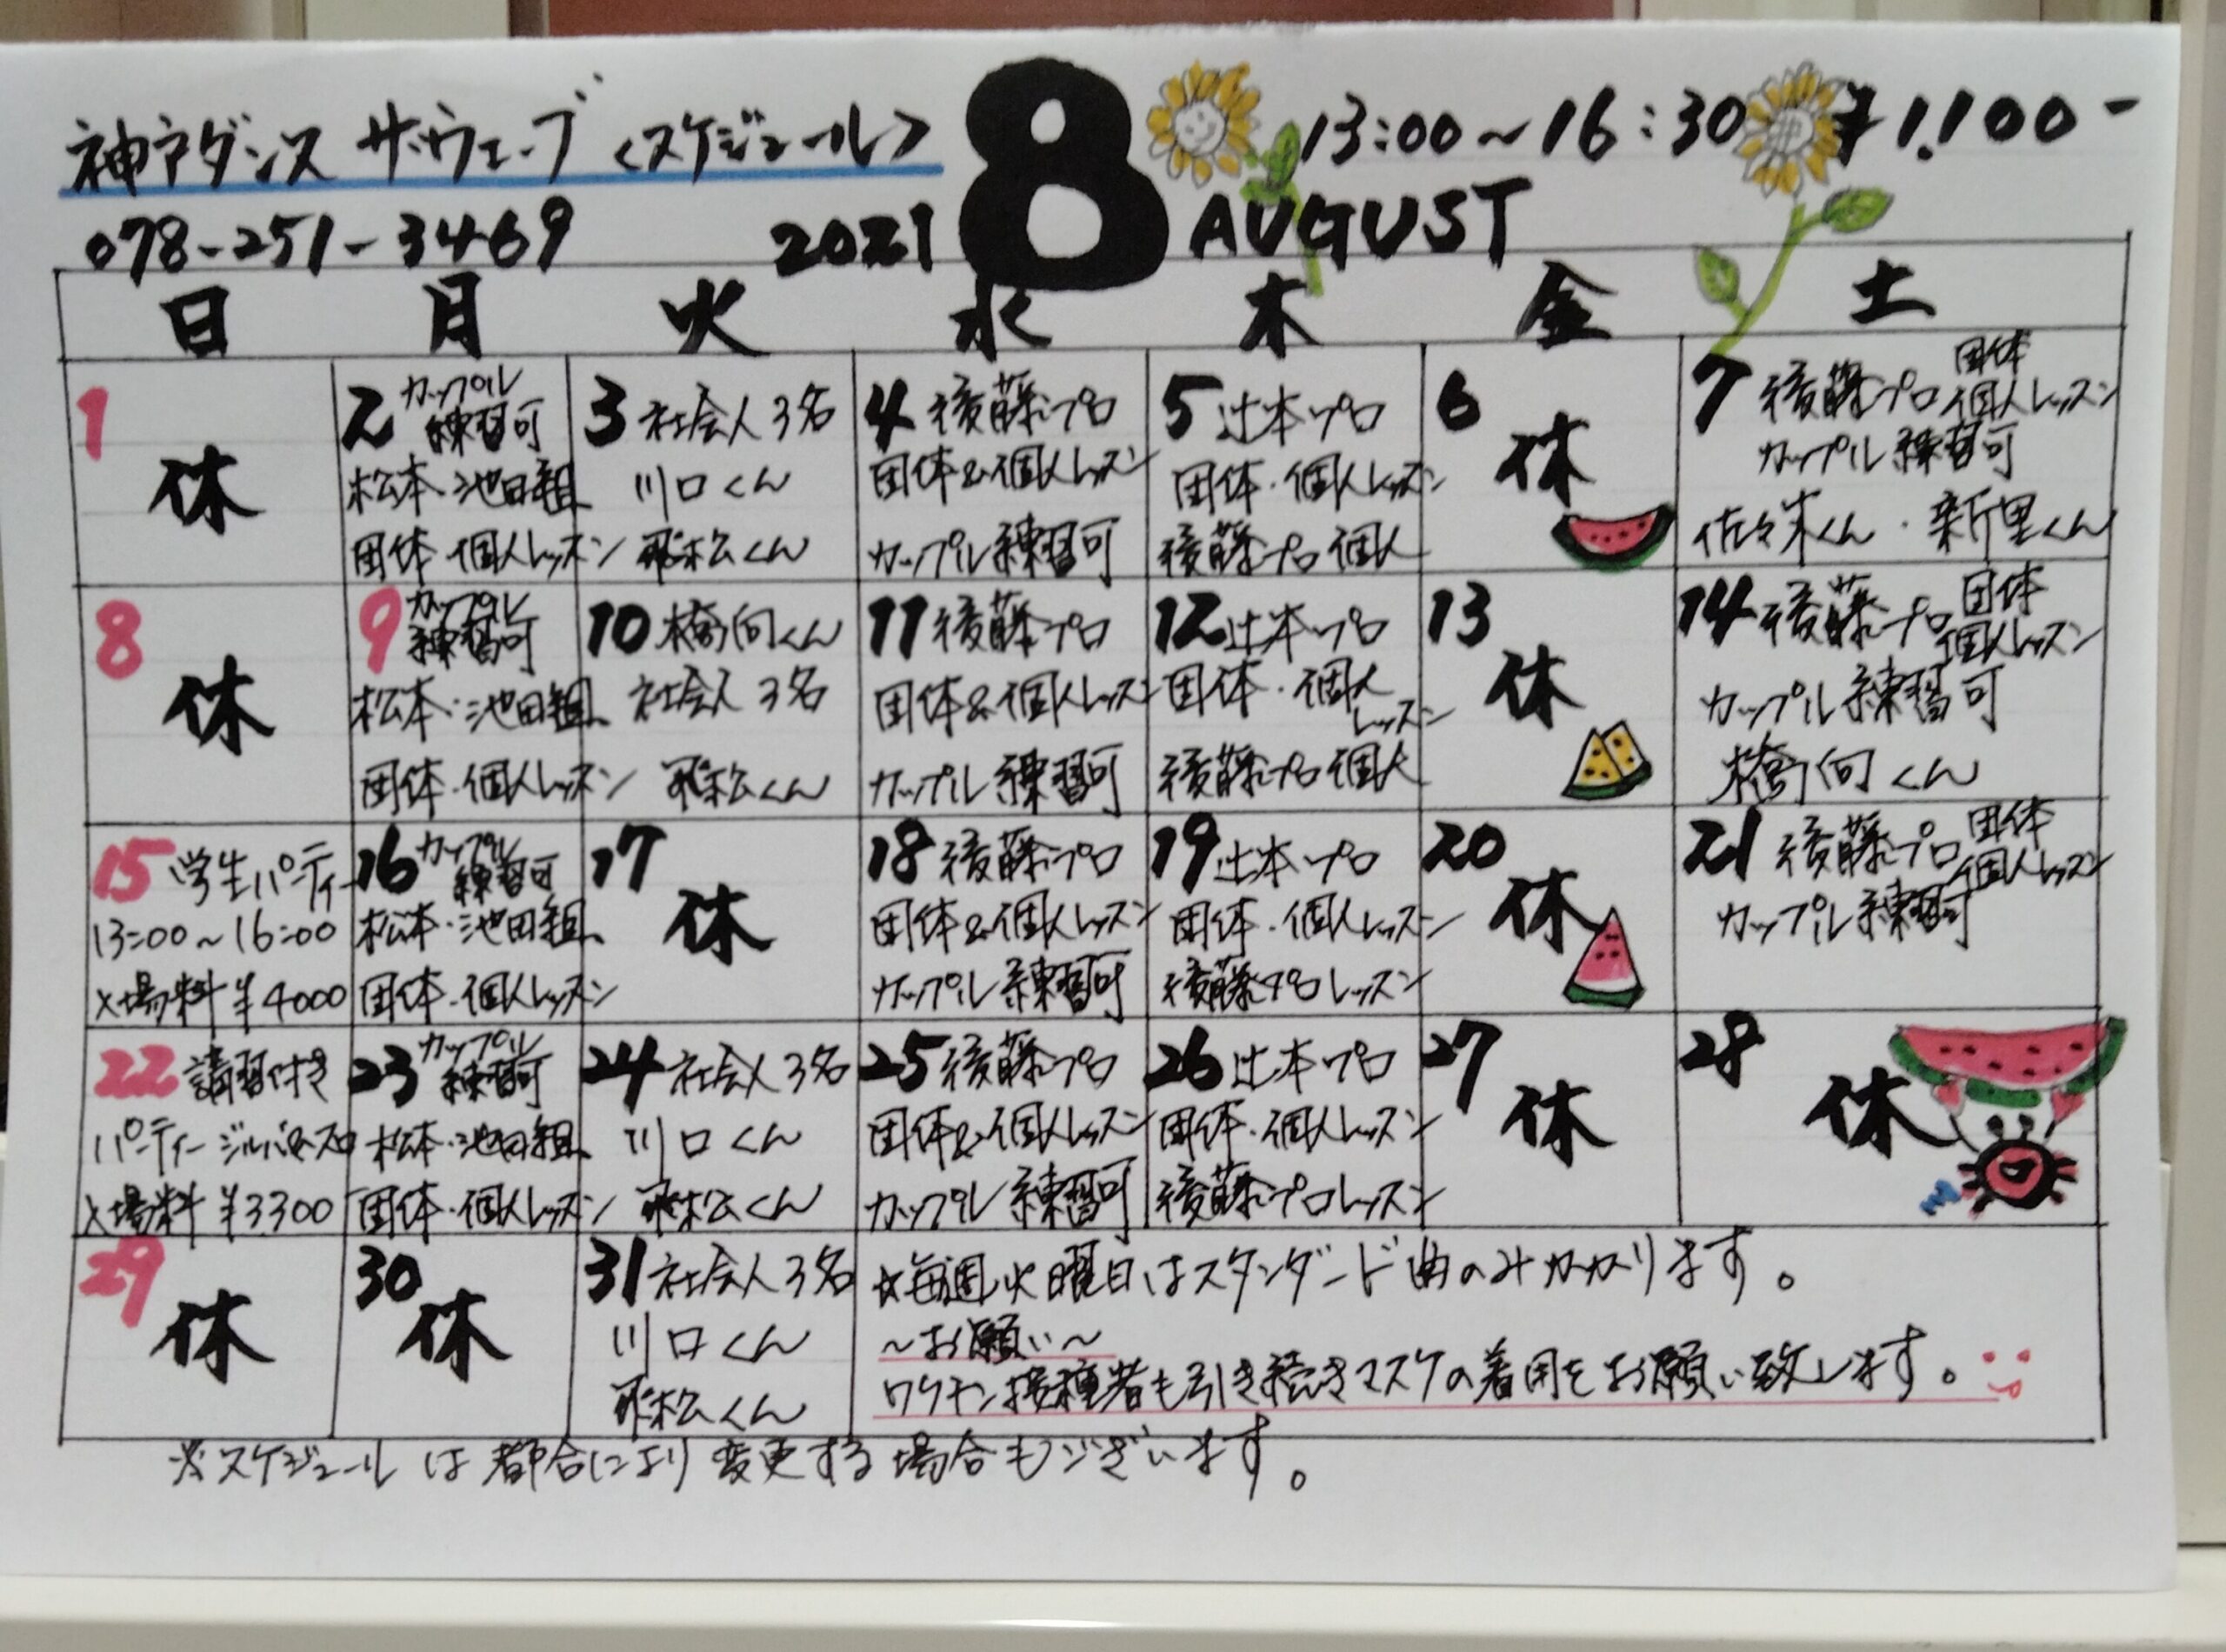 神戸ダンス ザ・ウェーブ <スケジュール>
8
13:00~16:30 ¥1,100-
078-251-3469
2021
AUGUST
日 月 火 水 木 金 土
1
休
2 カップル
練習可
松本・池田組
団体・個人レッスン
3 社会人3名
川口くん
飛松くん
4 後藤プロ
団体&個人レッスン
カップル練習可
5 辻本プロ
団体・個人レッスン
後藤プロ個人
6
休
7 後藤プロ 団体
個人レッスン
カップル練習可
佐々木くん・新里くん
8
休
9 カップル
練習可
松本・池田組
団体・個人レッスン
10 橋向くん
社会人3名
飛松くん
11 後藤プロ
団体&個人レッスン
カップル練習可
12 辻本プロ
団体・個人
レッスン
後藤プロ個人
13
休
14 後藤プロ 団体
個人レッスン
カップル練習可
橋向くん
15 学生パーティー
13:00~16:00
入場料¥4000
16 カップル
練習可
松本・池田組
団体・個人レッスン
17
休
18 後藤プロ
団体&個人レッスン
カップル練習可
19 辻本プロ
団体・個人レッスン
後藤プロレッスン
20
休
21 後藤プロ 団体
個人レッスン
カップル練習可
22 講習付き
パーティー ジルバ&スロ
入場料¥3300
23 カップル
練習可
松本・池田組
団体・個人レッスン
24 社会人3名
川口くん
飛松くん
25 後藤プロ
団体&個人レッスン
カップル練習可
26 辻本プロ
団体・個人レッスン
後藤プロレッスン
27
休
28
休
29
休
30
休
31 社会人3名
川口くん
飛松くん
☆毎週火曜日はスタンダード曲のみかかります。
~お願い~
ワクチン接種者も引き続きマスクの着用をお願い致します。
※スケジュールは都合により変更する場合もございます。